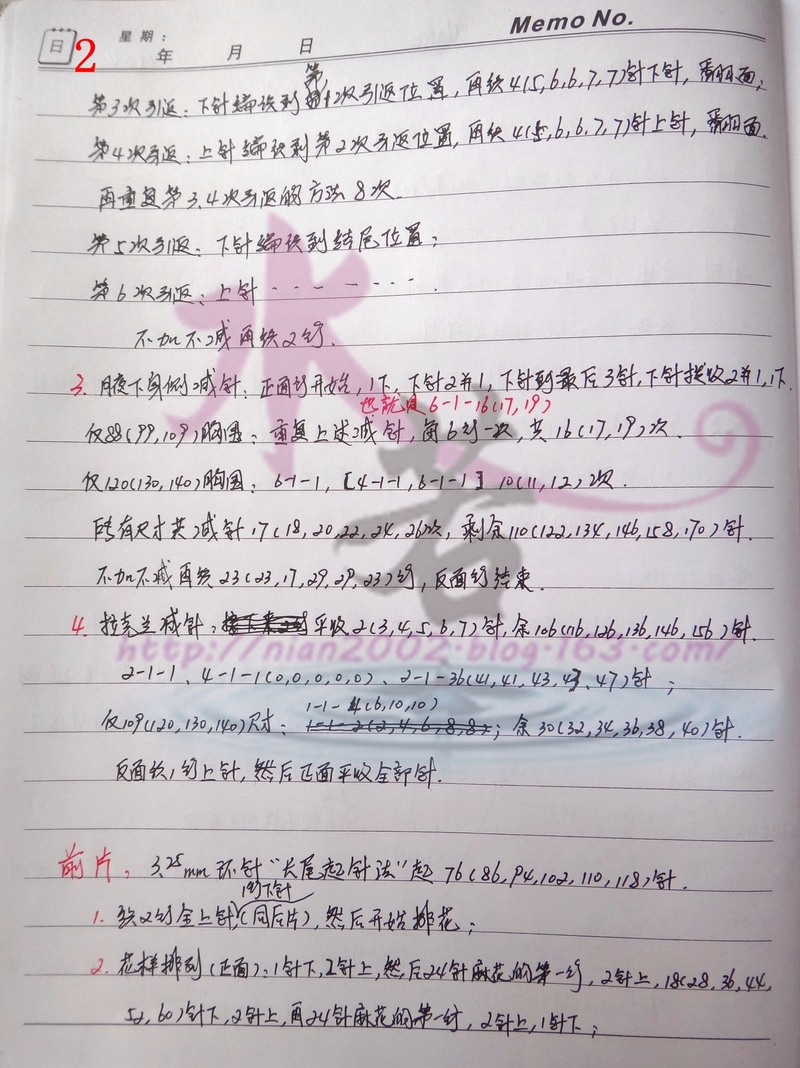 日
2
星期:
年 月 日
Memo No.
第
第3次引返:下针编织到第1次引返位置,再织4(5,6,6,7,7)针下针,翻面;
第4次引返:上针编织到第2次引返位置,再织4(5,6,6,7,7)针上针,翻面.
再重复第3,4次引返的方法8次.
第5次引返:下针编织到结尾位置;
第6次引返:上针 · · – – – · · · .
不加不减再织2行.
3. 腋下身侧减针:正面行开始,1下,下针2并1,下针到最后3针,下针拨收2并1,1下.
也就是6-1-16(17,19)
仅88(99,109)胸围:重复上述减针,每6行一次,共16(17,19)次.
仅120(130,140)胸围:6-1-1,[4-1-1,6-1-1]10(11,12)次.
所有尺寸共减针17(18,20,22,24,26)次,剩余110(122,134,146,158,170)针.
不加不减再织23(23,17,29,29,23)行,反面行结束.
4. 拉克兰减针:平收2(3,4,5,6,7)针,余106(116,126,136,146,156)针.
http://nian2002.blog.163.com/
水者
2-1-1、4-1-1(0,0,0,0,0)、2-1-36(41,41,43,43,47)针;
1-1-4(6,10,10)
仅109(120,130,140)尺寸:1-1-2(2,4,6,8,8);余30(32,34,36,38,40)针.
反面织1行上针,然后正面平收全部针.
前片:3.25mm环针"长尾起针法"起76(86,94,102,110,118)针.
1行下针
1. 织2行全上针(同后片),然后开始排花;
2. 花样排列(正面):1针下,2针上,然后24针麻花的第一行,2针上,18(28,36,44,
52,60)针下,2针上,再24针麻花的第一行,2针上,1针下;